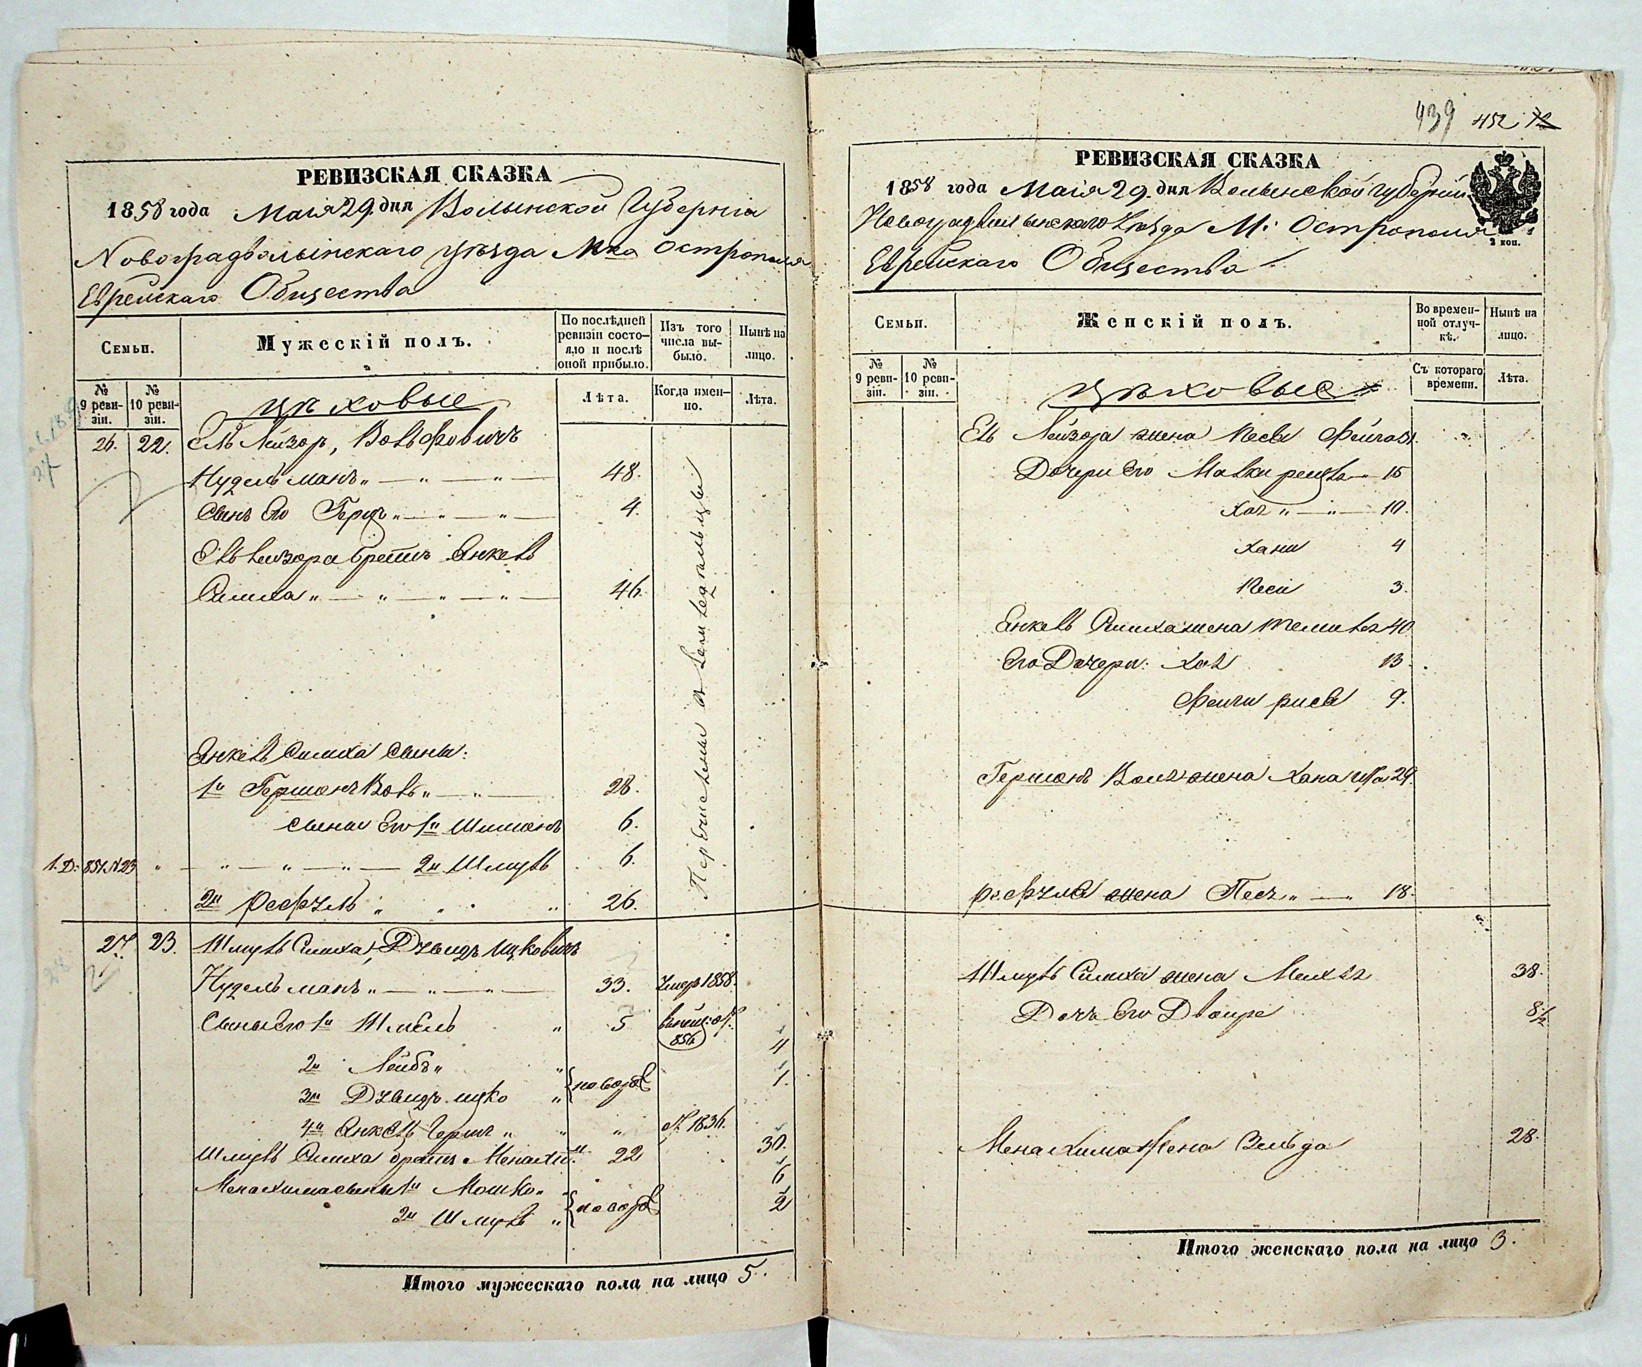 РЕВИЗСКАЯ СКАЗКА
1858 года Маія 29. дня Волынской Губерніи
Новоградволынскаго уѣзда М-ка Острополя
Еврейскаго Общества
Семьи.
Мужескій полъ.
По послѣдней ревизіи состояло и послѣ оной прибыло.
Изъ того числа выбыло.
Нынѣ на лицо.
№ 9 ревизіи.
№ 10 ревизіи.
цѣховые
Лѣта.
Когда именно.
Лѣта.
26. 22. Ель Лейзоръ, Вольфовичъ
Нудельманъ 48.
Сынъ Его Герцъ 4.
Ель Лейзора братъ Янкель
Симха 46.
Перечислены въ земледѣльцы
Янкель Симха сыны:
1й Гершонъ Волъ 28.
сыны Его 1й Шимонъ 6.
1. Д: 851 N 23 2й Шмуль 6.
2й Рефуль 26.
27. 23. Шмуль Симха, Давидъ Ицковичъ
Нудельманъ 33. Умеръ 1858.
Сыны Его 1й Шмель 5 856 4
2й Лейбъ 1.
3й Давидъ ицко новорож
4й Янкель Герш 1836.
Шмуль Симха братъ Менахим 22 30.
Менахима сыны 1й Мошко 6
2й Шмуль новорож 2
Итого мужескаго пола на лицо 5.
439 452 72
РЕВИЗСКАЯ СКАЗКА
1858 года Маія 29. дня Волынской губерніи
Новоградволынскаго уѣзда М: Острополя
Еврейскаго Общества
2 коп.
Семьи.
Женскій полъ.
Во временной отлучкѣ.
Нынѣ на лицо.
№ 9 ревизіи.
№ 10 ревизіи.
цѣховые
Съ котораго времени.
Лѣта.
Ель Лейзора жена Песи Фейга
Дочери Его Малки рейзля 15
Хая 10.
Хани 4
Песи 3.
Янкель Симха жена 40
Его Дочери: Хая 13
Фейги рися 9.
Гершонъ Воля жена Хана 29.
Рефула жена Песя 18.
Шмуль Симха жена 38.
Дочь Его Двойре 8½
Менахима Жена Зельда 28.
Итого женскаго пола на лицо 3.